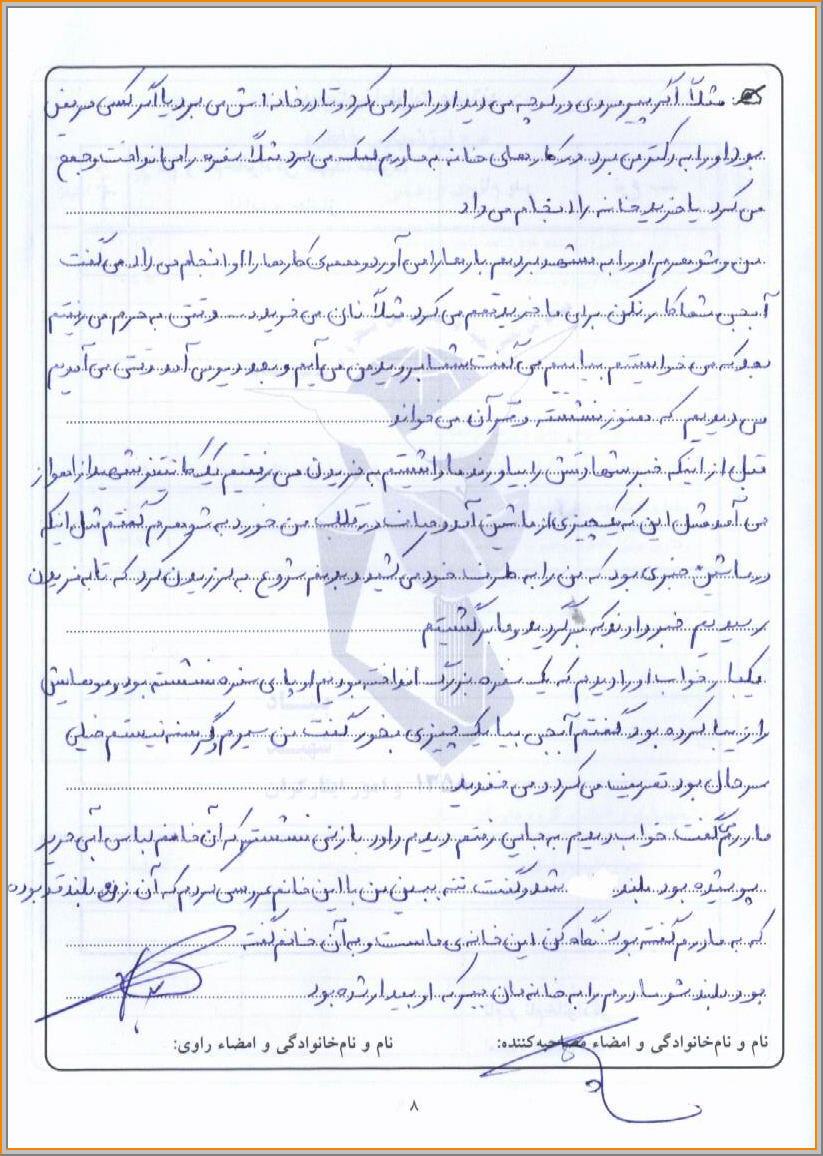 مثلاً اگر پیرمردی در کوچه می دید او را سوار می کرد و تا در خانه اش می برد یا اگر کسی مریض
بود او را به دکتر می برد در کارهای خانه به مادرم کمک می کرد مثلاً سفره را می انداخت و جمع
می کرد یا خرید خانه را انجام می داد
من و شوهرم او را به مشهد بردیم بارها را می آورد و همه ی کارها را او انجام می داد می گفت
آبجی شما کار نکن برای ما خرید هم می کرد مثلاً نان می خرید وقتی به حرم می رفتیم
بعد که می خواستیم بیاییم می گفت شما بروید من می آیم و بعد دیر می آمد وقتی می آمدیم
می دیدیم که هنوز نشسته و قرآن می خواند
قبل از اینکه خبر شهادتش را بیاورند ما داشتیم به فریدن می رفتیم یک کانتینر شهید از اهواز
می آمد مثل این که یک چیزی از ماشین آمد و در قلب من خورد به شوهرم گفتم مثل اینکه
در ماشین خبری بود که من را به طرف خود می کشید و بدنم شروع به لرزیدن کرد که تا به فریدن
رسیدیم خبر دادند که برگردید و ما برگشتیم
یکبار خواب او را دیدم که یک سفره بزرگ انداخته بودیم او پای سفره نشسته بود و موهایش
را زیبا کرده بود گفتم آبجی بیا یک چیزی بخور گفت من سیرم و گرسنه نیستم خیلی
سرحال بود تعریف می کرد و می خندید
مادرم می گفت خواب دیدم به جایی رفتم دیدم مادر با زنی نشسته که آن خانم لباس آبی حریر
پوشیده بود بلند شد و گفت ننه ببین من با این خانم عروسی کردم که آن زن بلند قد بوده
که به مادرم گفته بود نگاه کن این خانه ی ماست و به آن خانم گفته
بود بلند شو مادرم را به خانه مان ببر که او بیدار شده بود
نام و نام خانوادگی و امضاء مصاحبه کننده: نام و نام خانوادگی و امضاء راوی:
۸